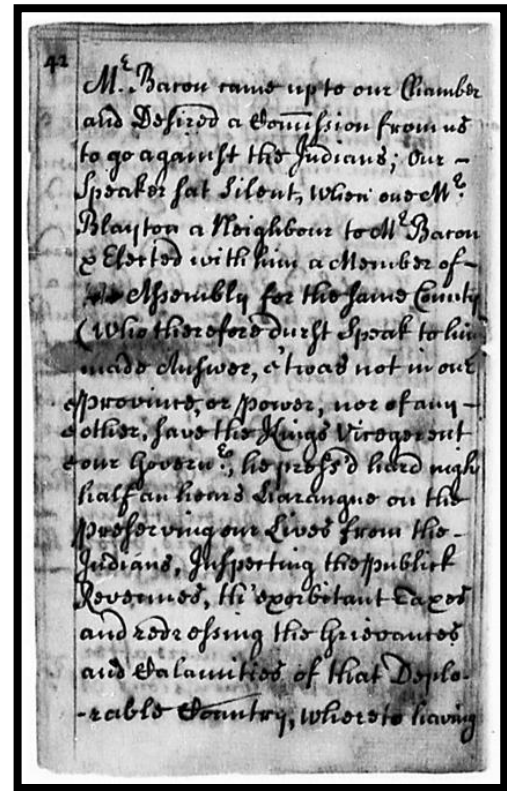 42
Mr. Bacon came up to our Chamber
and Desired a Comission from us
to go against the Indians; Our -
Speaker sat Silent, when one Mr.
Blayton a Neighbour to Mr. Bacon
& Elected with him a Member of -
Assembly for the same County
(Who therefore durst Speak to him
made Answer, 'twas not in our
Province, or Power, nor of any -
other, save the Kings Vicegerent
our Govern.r, he press'd hard nigh
half an hears Harangue on the
Preserving our Lives from the -
Indians, Inspecting the publick
Revenues, th'exorbitant Taxes
and redressing the Grievances
and Calamities of that Deplo-
-rable Country, whereto having